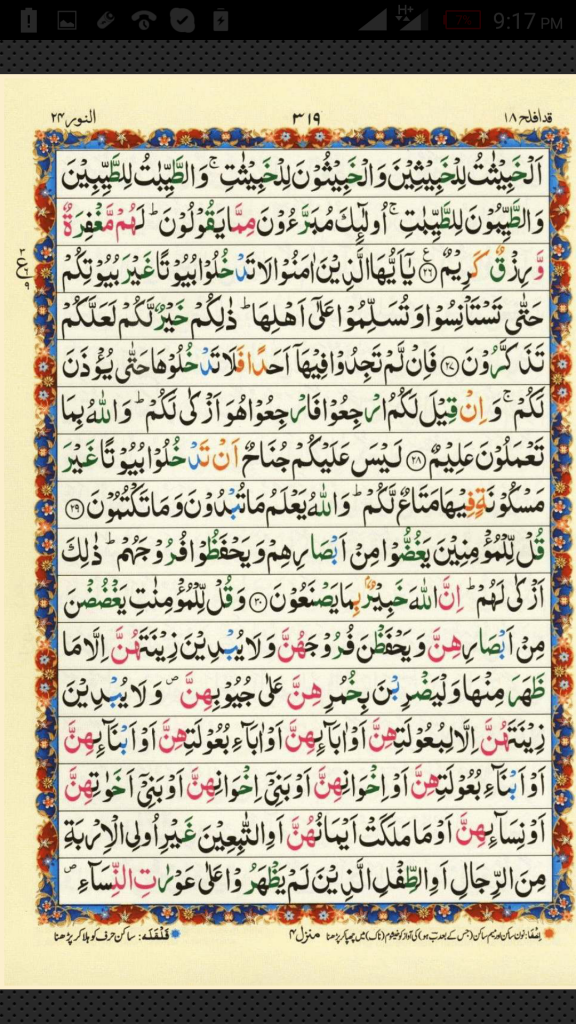 9:17 PM
قدافلح ۱۸
۳۱۹
النور ۲۴
اَلْخَبِيْثٰتُ لِلْخَبِيْثِيْنَ وَالْخَبِيْثُوْنَ لِلْخَبِيْثٰتِ ۚ وَالطَّيِّبٰتُ لِلطَّيِّبِيْنَ
وَالطَّيِّبُوْنَ لِلطَّيِّبٰتِ ۚ اُولٰٓئِكَ مُبَرَّءُوْنَ مِمَّا يَقُوْلُوْنَ ؕ لَهُمْ مَّغْفِرَةٌ
وَّ رِزْقٌ كَرِيْمٌ ۟۲۶ يٰۤاَيُّهَا الَّذِيْنَ اٰمَنُوْا لَا تَدْخُلُوْا بُيُوْتًا غَيْرَ بُيُوْتِكُمْ
حَتّٰى تَسْتَاْنِسُوْا وَ تُسَلِّمُوْا عَلٰۤى اَهْلِهَا ؕ ذٰلِكُمْ خَيْرٌ لَّكُمْ لَعَلَّكُمْ
تَذَكَّرُوْنَ ۲۷ فَاِنْ لَّمْ تَجِدُوْا فِيْهَاۤ اَحَدًا فَلَا تَدْخُلُوْهَا حَتّٰى يُؤْذَنَ
لَكُمْ ۚ وَ اِنْ قِيْلَ لَكُمُ ارْجِعُوْا فَارْجِعُوْا هُوَ اَزْكٰى لَكُمْ ؕ وَاللّٰهُ بِمَا
تَعْمَلُوْنَ عَلِيْمٌ ۲۸ لَيْسَ عَلَيْكُمْ جُنَاحٌ اَنْ تَدْخُلُوْا بُيُوْتًا غَيْرَ
مَسْكُوْنَةٍ فِيْهَا مَتَاعٌ لَّكُمْ ؕ وَاللّٰهُ يَعْلَمُ مَا تُبْدُوْنَ وَ مَا تَكْتُمُوْنَ ۲۹
قُلْ لِّلْمُؤْمِنِيْنَ يَغُضُّوْا مِنْ اَبْصَارِهِمْ وَ يَحْفَظُوْا فُرُوْجَهُمْ ؕ ذٰلِكَ
اَزْكٰى لَهُمْ ؕ اِنَّ اللّٰهَ خَبِيْرٌۢ بِمَا يَصْنَعُوْنَ ۳۰ وَ قُلْ لِّلْمُؤْمِنٰتِ يَغْضُضْنَ
مِنْ اَبْصَارِهِنَّ وَ يَحْفَظْنَ فُرُوْجَهُنَّ وَلَا يُبْدِيْنَ زِيْنَتَهُنَّ اِلَّا مَا
ظَهَرَ مِنْهَا وَلْيَضْرِبْنَ بِخُمُرِهِنَّ عَلٰى جُيُوْبِهِنَّ ۪ وَ لَا يُبْدِيْنَ
زِيْنَتَهُنَّ اِلَّا لِبُعُوْلَتِهِنَّ اَوْ اٰبَآئِهِنَّ اَوْ اٰبَآءِ بُعُوْلَتِهِنَّ اَوْ اَبْنَآئِهِنَّ
اَوْ اَبْنَآءِ بُعُوْلَتِهِنَّ اَوْ اِخْوَانِهِنَّ اَوْ بَنِيْۤ اِخْوَانِهِنَّ اَوْ بَنِيْۤ اَخَوٰتِهِنَّ
اَوْ نِسَآئِهِنَّ اَوْ مَا مَلَكَتْ اَيْمَانُهُنَّ اَوِ التّٰبِعِيْنَ غَيْرِ اُولِى الْاِرْبَةِ
مِنَ الرِّجَالِ اَوِ الطِّفْلِ الَّذِيْنَ لَمْ يَظْهَرُوْا عَلٰى عَوْرٰتِ النِّسَآءِ ۪
اِخْفَا: نون ساکن اور میم ساکن (جس کے بعد ب ہو) کی آواز کو خیشوم (ناک) میں چھپا کر پڑھنا
منزل ۴
قَلْقَلَہ: ساکن حرف کو ہلا کر پڑھنا